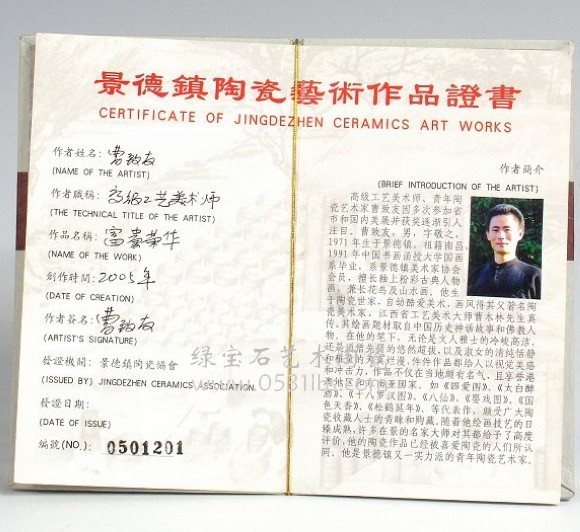 景德鎮陶瓷藝術作品證書
CERTIFICATE OF JINGDEZHEN CERAMICS ART WORKS
作者姓名: 曹致友
(NAME OF THE ARTIST)
作者職稱: 高级工艺美术师
(THE TECHNICAL TITLE OF THE ARTIST)
作品名稱: 富贵荣华
(NAME OF THE WORK)
創作時間: 2005年
(DATE OF CREATION)
作者簽名: 曹致友
(ARTIST'S SIGNATURE)
發證機關: 景德鎮陶瓷協會
(ISSUED BY) JINGDEZHEN CERAMICS ASSOCIATION.
發證日期:
(DATE OF ISSUE)
編號(NO.): 0501201
作者簡介
(BRIEF INTRODUCTION OF THE ARTIST)
高级工艺美术师、青年陶
瓷艺术家曹致友因多次参加省
市和国内美展并获奖逐渐引人
注目。曹致友,男,字敬之,
1971年生于景德镇,祖籍南昌,
1991年中国书画函授大学国画
系毕业,系景德镇美术家协会
会员,擅长釉上粉彩古典人物
画,兼长花鸟及山水画。他生
于陶瓷世家,自幼酷爱美术,画风得其父著名陶
瓷美术家、江西省工艺美术大师曹木林先生真
传,其绘画题材取自中国历史神话故事和佛教人
物。在他的笔下,无论是文人雅士的冷峻高洁,
还是道僧
的悠然超拔,以及淑女的清纯恬静
烂漫,件件作品都给人以视觉美感
和冲击力,作品不仅在当地颇有名气,且享誉港
澳地区和东南亚国家。如《四爱图》、《太白醉
酒》、《十八罗汉图》、《八仙》、《婴戏图》、《国
色天香》、《松鹤延年》、等代表作,颇受广大陶
瓷收藏人士的青睐和购藏。随着他绘画技艺的日
臻成熟,许多在景的名家大师对其都给予了高度
评价,他的陶瓷作品已经被喜爱陶瓷的人们所认
同。他是景德镇又一实力派的青年陶瓷艺术家。
绿宝石艺术